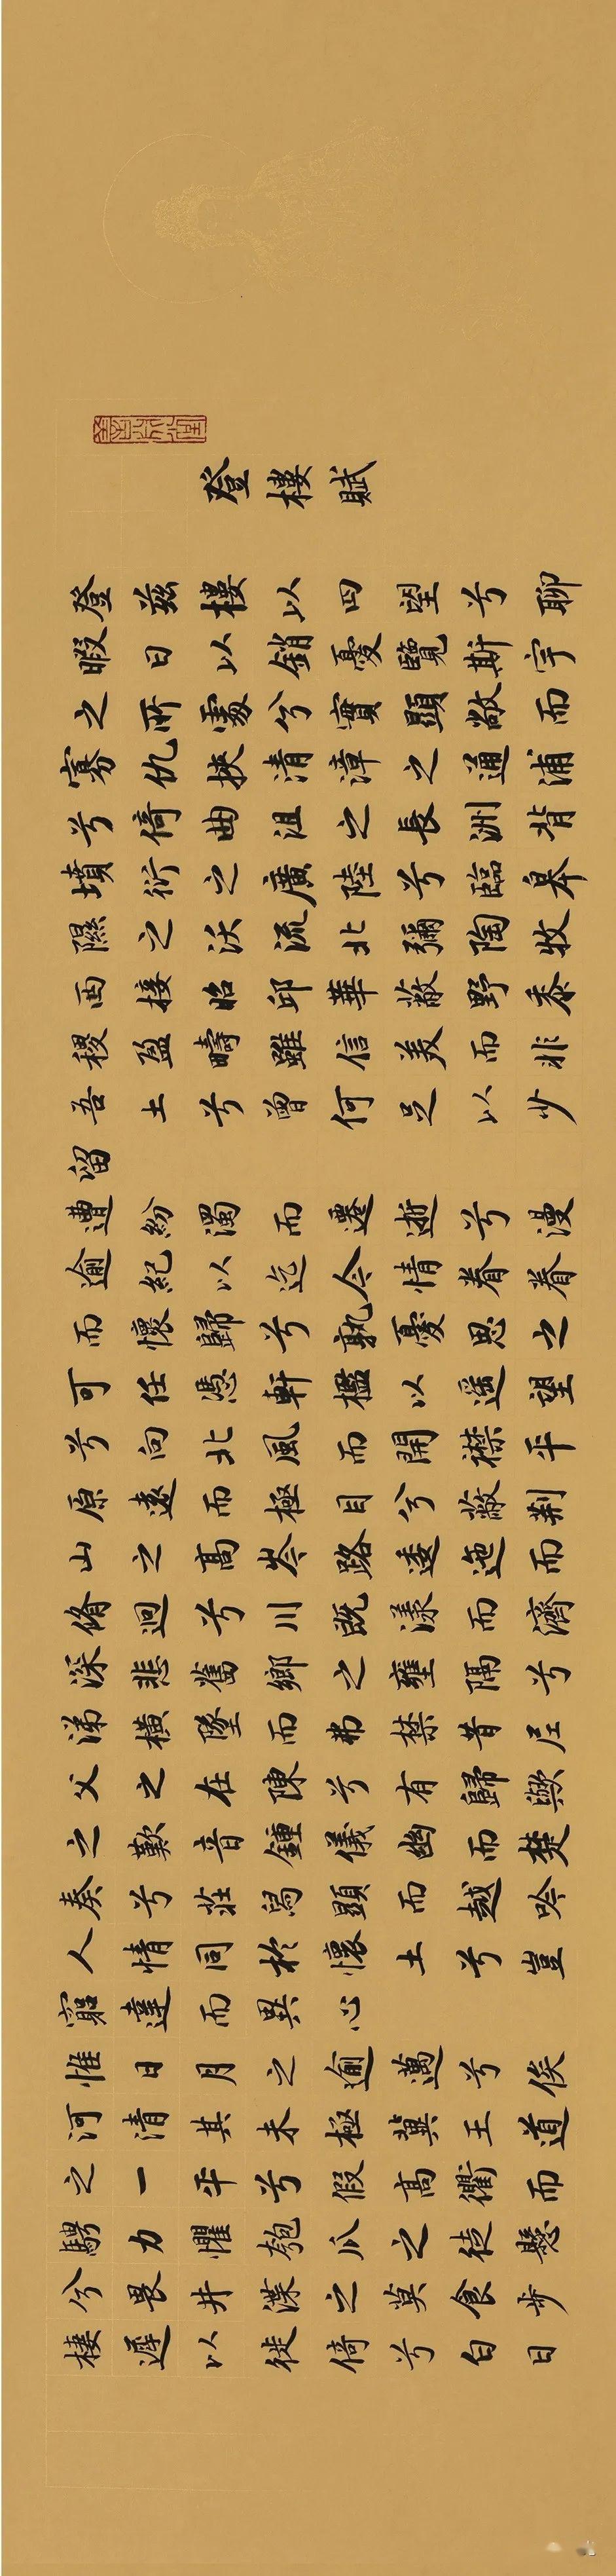 登樓賦
登茲樓以四望兮聊
暇日以銷憂覽斯宇
之所處兮實顯敞而
寡仇挾清漳之通浦
兮倚曲沮之長洲背
墳衍之廣陸兮臨皋
隰之沃流北彌陶牧
西接昭邱華蔽野黍
稷盈疇雖信美而非
吾土兮曾何足以少
留
遭紛濁而遷逝兮漫
逾紀以迄今情眷眷
而懷歸兮孰憂思之
可任憑軒檻以遙望
兮向北風而開襟平
原遠而極目兮蔽荊
山之高岑路逶迤而
脩迥兮川既漾而濟
深悲舊鄉之壅隔兮
涕橫墜而弗禁昔尼
父之在陳兮有歸歟
之歎音鍾儀幽而楚
奏兮莊舄顯而越吟
人情同於懷土兮豈
窮達而異心
惟日月之逾邁兮俟
河清其未極冀王道
之一平兮假高衢而
騁力懼匏瓜之徒懸
兮畏井渫之莫食步
棲遲以徙倚兮白日